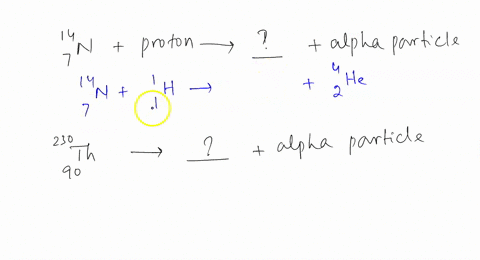 ¹⁴₇N + proton → ? + alpha particle
¹⁴₇N + ¹₁H → + ⁴₂He
²³⁰₉₀Th → ? + alpha particle